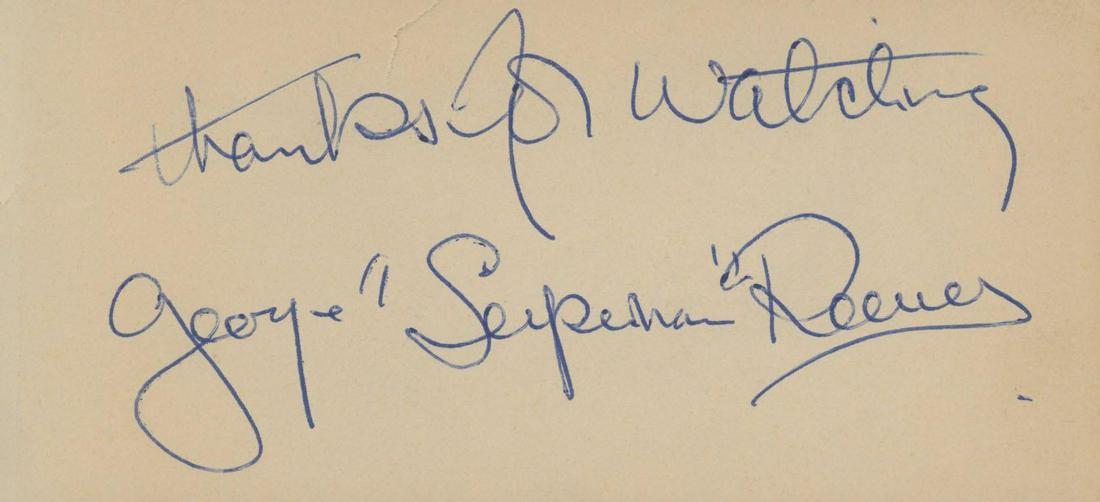 thanks for Watching
George "Superman" Reeves